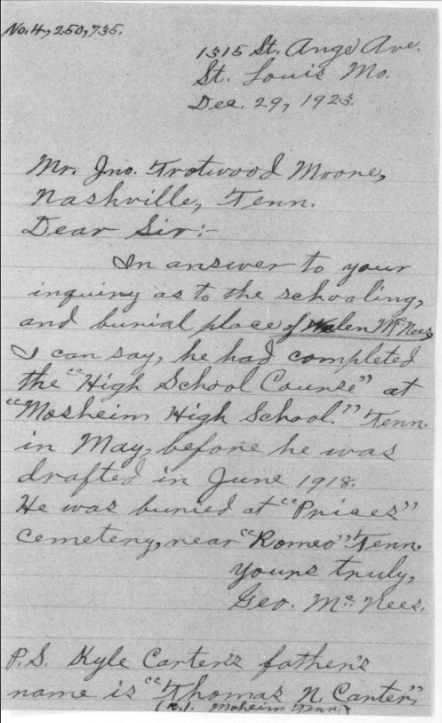 No. 4,250,735.
1315 St. Ange Ave.
St. Louis Mo.
Dec. 29, 1923.
Mr. Jno. Trotwood Moore,
Nashville, Tenn.
Dear Sir:-
In answer to your
inquiry as to the schooling,
and burial place of Walen McNees
I can say, he had completed
the "High School Course" at
"Mosheim High School." Tenn.
in May, before he was
drafted in June 1918.
He was buried at "Prices"
cemetery, near "Romeo" Tenn.
yours truly,
Geo. McNees.
P.S. Kyle Carter's father's
name is "Thomas N. Carter",
(R.1. Moheim Tenn.)